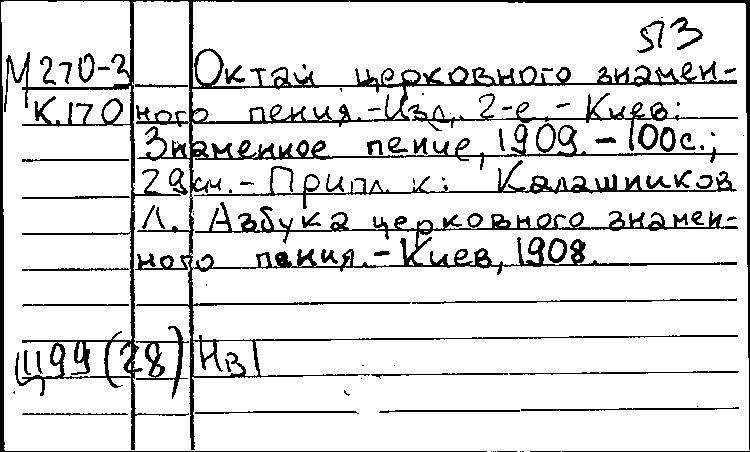 513
М270-3 Октай церковного знамен-
К.170 ного пения.-Изд. 2-е.- Киев:
Знаменное пение, 1909.-100с.;
29см.- Прил. к: Калашников
Л. Азбука церковного знамен-
ного пения.-Киев, 1908.
Щ99(28) Нв1